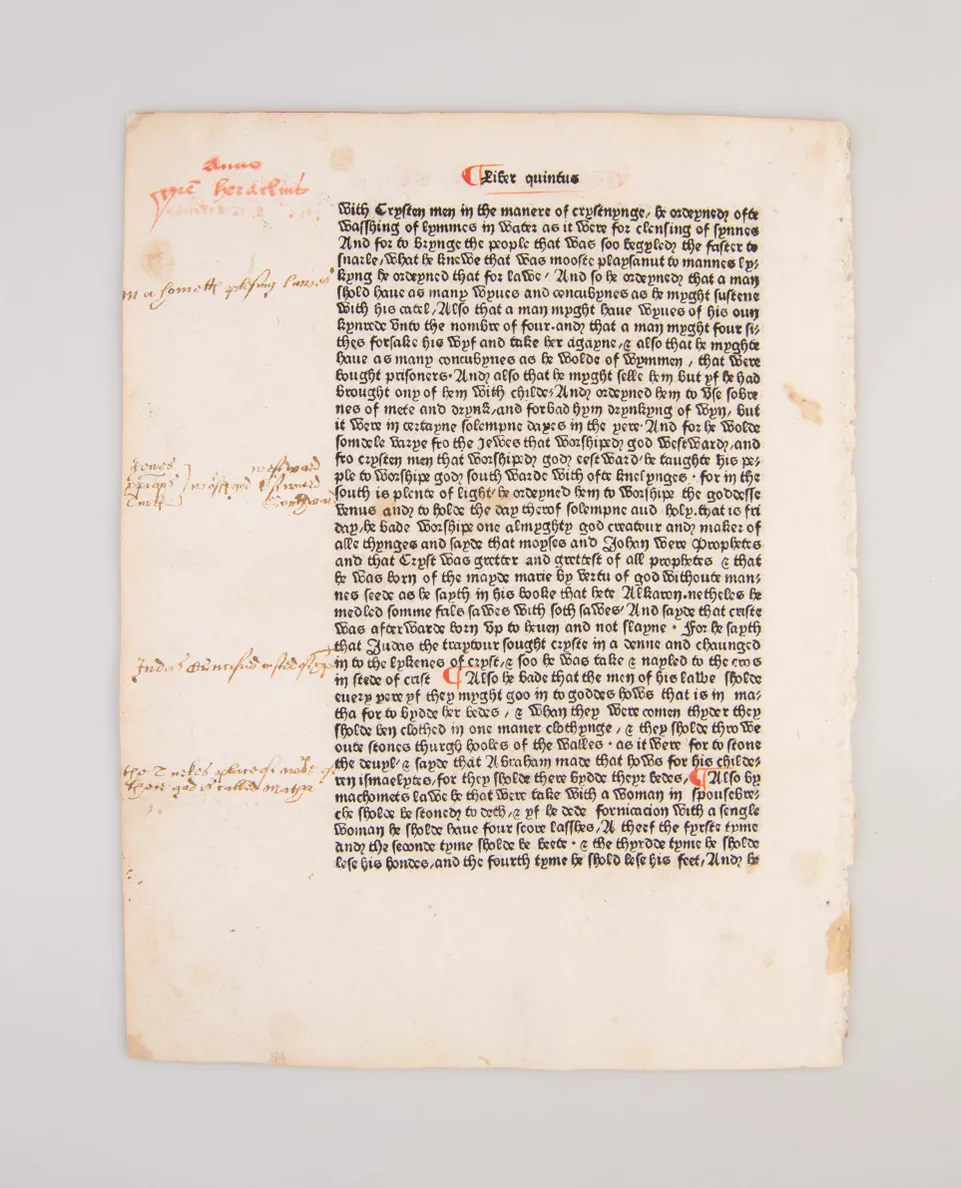 Anno
heraclius
¶Liber quintus
with Crysten men in the manere of crystenynge, he ordeyned ofte
wasshing of lymmes in water as it were for clensing of synnes
And for to brynge the people that was soo begyled the faster to
snarle, what he knewe that was mooste playsanut to mannes ly⸗
kyng he ordeyned that for lawe/ And so he ordeyned that a man
shold haue as many wyues and concubynes as he myght sustene
with his catel, Also that a man myght haue wyues of his oun
kynrede vnto the nombre of four. and that a man myght four si⸗
thes forsake his wyf and take her agayne, & also that he myghte
haue as many concubynes as he wolde of wymmen, that were
bought prisoners. And also that he myght selle hem but yf he had
brought ony of hem with childe: And ordeyned hem to vse sobre
nes of mete and drynk, and forbad hym drynkyng of wyn, but
it were in certayne solempne dayes in the yere. And for he wolde
somdele varye fro the Jewes that worshiped god westward, and
fro crysten men that worshiped god eestward/ he taughte his pe⸗
ple to worshipe god south warde with ofte knelynges. for in the
south is plente of light/ he ordeyned hem to worshipe the goddesse
venus and to holde the day therof solempne aud holy. that is fri
day, he bade worshipe one almyghty god creatour and maker of
alle thynges and sayde that moyses and Johan were Prophetes
and that Cryst was gretter and grettest of all prophetes & that
he was born of the mayde marie by vertu of god withoute man⸗
nes seede as he sayth in his booke that hete Alkaron. netheles he
medled somme fals sawes with soth sawes/ And sayde that criste
was afterwarde born vp to heuen and not slayne. For he sayth
that Judas the traytour sought cryste in a denne and chaunged
in to the lykenes of cryst, & soo he was take & nayled to the cros
in stede of crist ¶ Also he bade that the men of his lawe sholde
euery yere yf they myght goo in to goddes hows that is in ma⸗
tha for to bydde her bedes, & whan they were comen thyder they
sholde ben clothed in one maner clothynge, & they sholde throwe
oute stones thurgh hooles of the walles. as it were for to stone
the deuyl, & sayde that Abraham made that hows for his childe⸗
ren ismaelytes, for they sholde there bydde theyr bedes, ¶ Also by
machomets lawe he that were take with a woman in spousebre⸗
che sholde be stoned to deth, & yf he dede fornicacion with a sengle
woman he sholde haue four score lasshes, A theef the fyrste tyme
and the seconde tyme sholde be beete. & the thyrdde tyme he sholde
lese his hondes, and the fourth tyme he shold lese his feet, And he
mahomett plesing lawes
Jewes westward
worshipp god estward
Turke Southward
Judas Crucified insted of
the Turkes place of
their god is called Matha